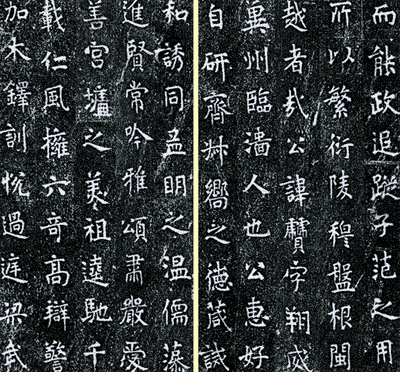 而能政追蹤子范之用
所以繁衍陵穆盤根閩
越者哉公諱字翔
冀州臨人也公惠好
自研齊嚮之德箴誠
和誘同孟明之温儒藻
進賢常吟雅頌肅嚴愛
善宮墉之美祖遠馳千
載仁風擁六奇高辯警
加木鐸訓悅過庭梁武